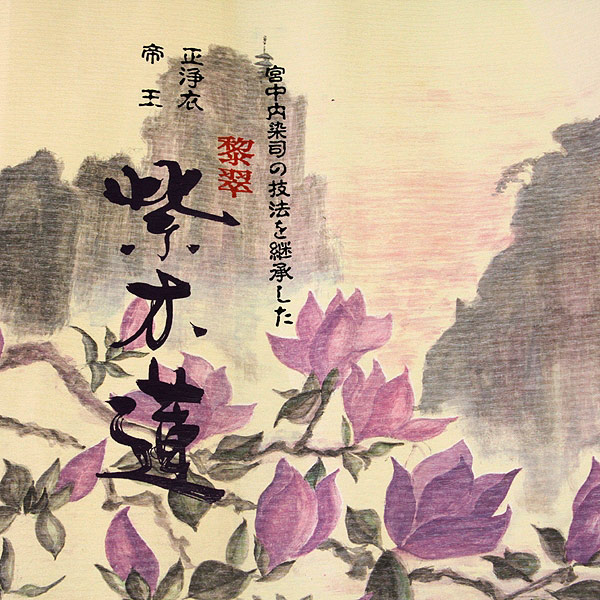 宮中内染司の技法を継承した
黎翠
正浄衣
帝王
紫木蓮